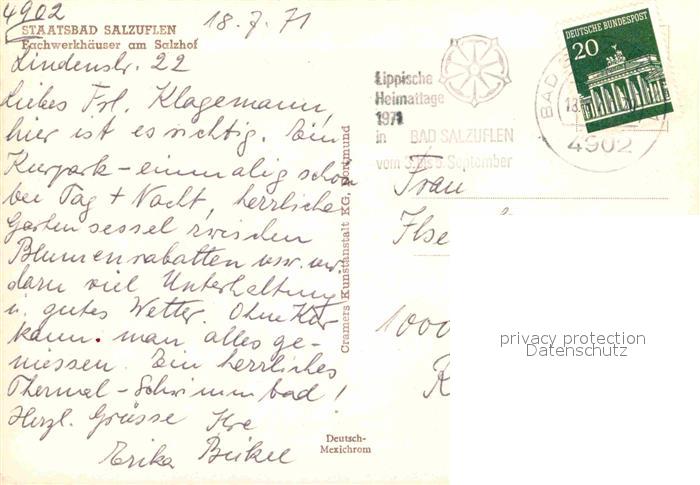 4902
18.7.71
STAATSBAD SALZUFLEN
Fachwerkhäuser am Salzhof
Lindenstr. 22
Liebes Frl. Klagemann,
hier ist es richtig. Ein
Kurpark - einmalig schön
bei Tag + Nacht, herrliche
Gartensessel zwischen
Blumenrabatten usw. usw.
dazu viel Unterhaltung
u. gutes Wetter. Ohne Kur
kann man alles ge-
niessen. Ein herrliches
Thermal-Schwimmbad!
Herzl. Grüsse Ihre
Erika
Cramers Kunstanstalt KG, Dortmund
Deutsch-
Mexichrom
Lippische
Heimattage
1971
in BAD SALZUFLEN
vom 3. bis 6. September
DEUTSCHE BUNDESPOST
20
BAD
18.
4902
Frau
Ilse
1000
privacy protection
Datenschutz